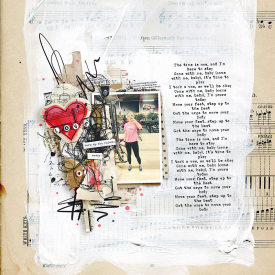 The time is now, and I'm
here to stay
Come with me, baby come
with me, baby, it's time to
play
I took a vow, so we'll be okay
Come with me, baby come
with me, baby, I'm yours
today
Move your feet, step up to
the beat
Got the urge to move your
body
Move your feet, step up to
the beat
Got the urge to move your
body
The time is now, and I'm
here to stay
Come with me, baby come
with me, baby, it's time to
play
I took a vow, so we'll be okay
Come with me, baby come
with me, baby, I'm yours
today
Move your feet, step up to
the beat
Got the urge to move your
body
Move your feet, step up to
the beat
Got the urge to move your
body